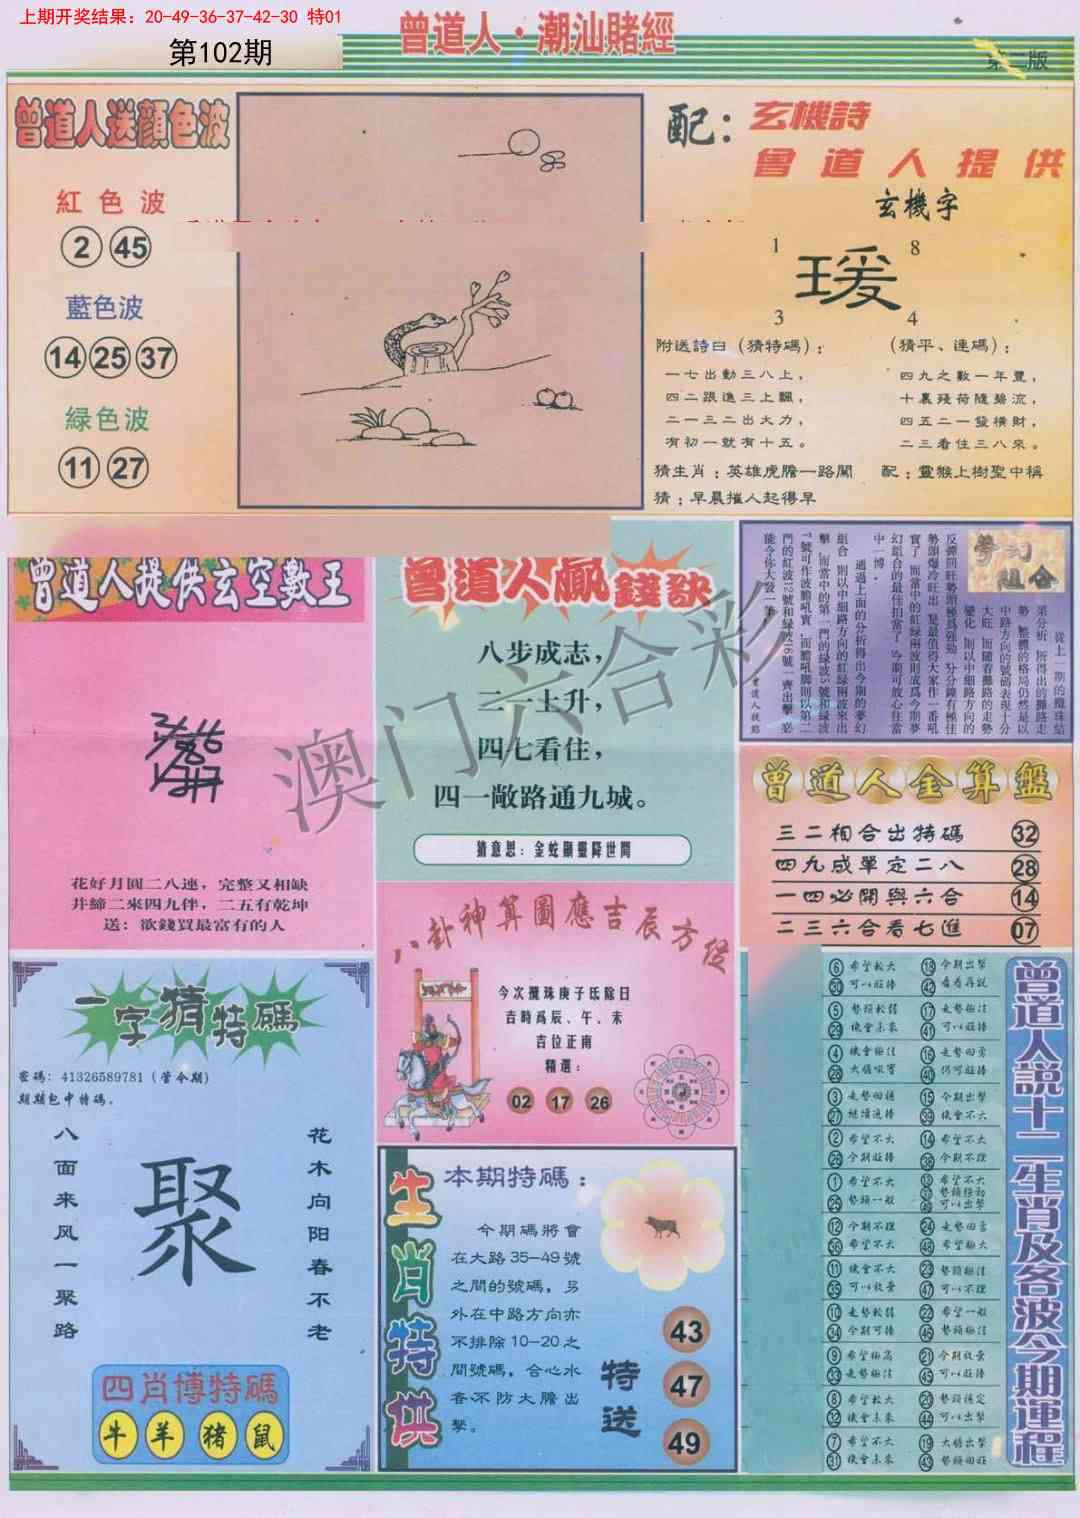 上期开奖结果：20-49-36-37-42-30 特01
第102期
曾道人·潮汕賭經
第二版
曾道人送顏色波
紅色波
2 45
藍色波
14 25 37
緑色波
11 27
配：玄機詩
曾道人提供
玄機字
1 8
瑗
3 4
附送詩曰（猜特碼）：
一七出動三八上，
四二跟進三上飄，
二一三二出大力，
有初一就有十五。
（猜平、連碼）：
四九之數一年豐，
十裏殘荷隨碧流，
四五二一發橫財，
二三看住三八來。
猜生肖：英雄虎膽一路闖
配：靈猴上樹聖中稱
猜：早晨摧人起得早
曾道人提供玄空數王
花好月圓二八連，完整又相缺
并締二來四九伴，二五有乾坤
送：欲錢買最富有的人
曾道人贏錢訣
八步成志，
二一上升，
四七看住，
四一敞路通九城。
猜意思：金蛇顯靈降世間
夢幻組合
從上一期的攪珠結
果分析，所得出的攤路走
勢，整體的格局仍然是以
中路方向的號碼表現十分
大旺，而隨着攤路的走勢
變化，則以中細路方向的
反彈回旺勢頭極爲強勁，分分鐘有極佳
勢頭爆冷旺出，是最值得大家作一番吼
實了，而當中的紅緑兩波則成爲今期夢
幻組合的最佳拍當了，今期可放心往當
中一博。
通過上面的分析得出今期的夢幻
組合，則以中細路方向的紅緑兩波來出
擊，而當中的第一門的緑波5號和緑波
號可作波膽吼實，而膽吼脚則以第二
門的紅波12號和緑波16號一齊出擊，必
能令你大發一筆！
曾道人金算盤
三二相合出特碼 32
四九成單定二八 28
一四必開與六合 14
二三六合看七進 07
八卦神算圖應吉辰方位
今次攪珠庚子氐除日
吉時爲辰、午、未
吉位正南
精選：
02 17 26
一字猜特碼
密碼：41326589781（管令期）
期期包中特碼。
八面来风一聚路
聚
花木向阳春不老
四肖博特碼
牛 羊 猪 鼠
生肖特供
本期特碼：
今期碼將會
在大路35-49號
之間的號碼，另
外在中路方向亦
不排除10-20之
間號碼，合心水
者不防大膽出
擊。
特送
43
47
49
曾道人說十二生肖及各波今期運程
6 希望較大 18 今期出擊
30 可以旺捧 42 看看再說
5 勢頭較弱 17 走勢極佳
29 機會未來 41 可以旺捧
4 機會極佳 16 走勢回勇
28 大膽吼實 40 仍可旺捧
3 走勢回穩 15 今期出擊
27 繼續追捧 39 機會不大
2 希望不大 14 希望不大
26 今期旺捧 38 今期不理
1 希望不大 13 希望不大
25 勢頭一般 37 勢頭移動
49 可以出擊
12 今期不理 24 走勢回勇
36 希望不大 48 希望極大
11 機會不大 23 勢頭極佳
35 可以放棄 47 可以不理
10 走勢較弱 22 希望一般
34 今期可捧 46 勢頭極佳
9 希望極高 21 今期放棄
33 走勢極佳 45 可以旺捧
8 希望較大 20 勢頭穩定
32 機會未來 44 可以出擊
7 希望不大 19 大膽出擊
31 機會未來 43 勢頭回旺
澳门六合彩